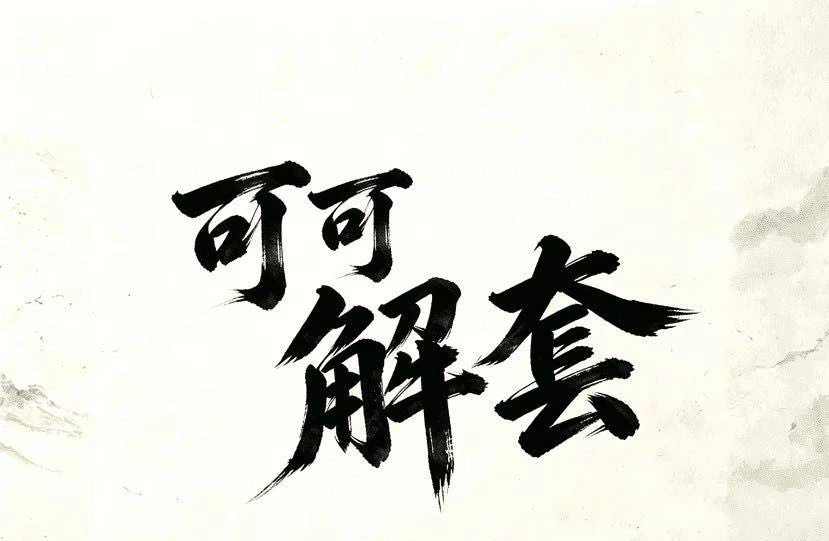 可可
解套